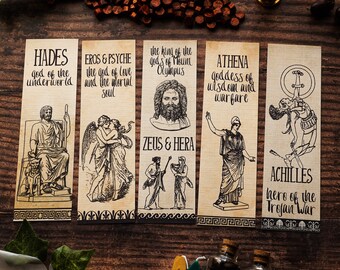 HADES
god of the
underworld
EROS & PSYCHE
the god of love
and the mortal
soul
the king of the
gods of Mount
Olympus
ZEUS & HERA
ATHENA
goddess of
wisdom and
warfare
ACHILLES
hero of the
Trojan War